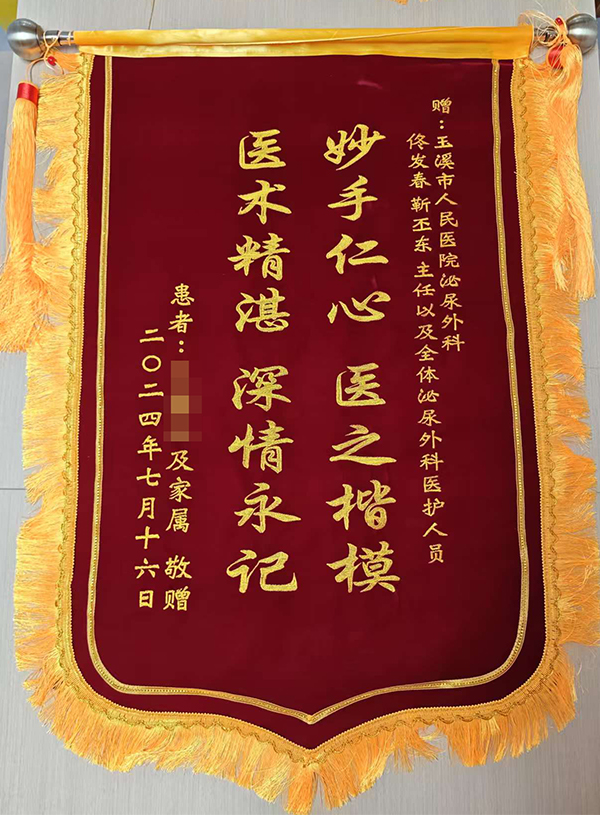 赠：玉溪市人民医院泌尿外科
佟发春 靳丕东 主任以及全体泌尿外科医护人员
妙手仁心 医之楷模
医术精湛 深情永记
患者：及家属 敬赠
二〇二四年七月十六日